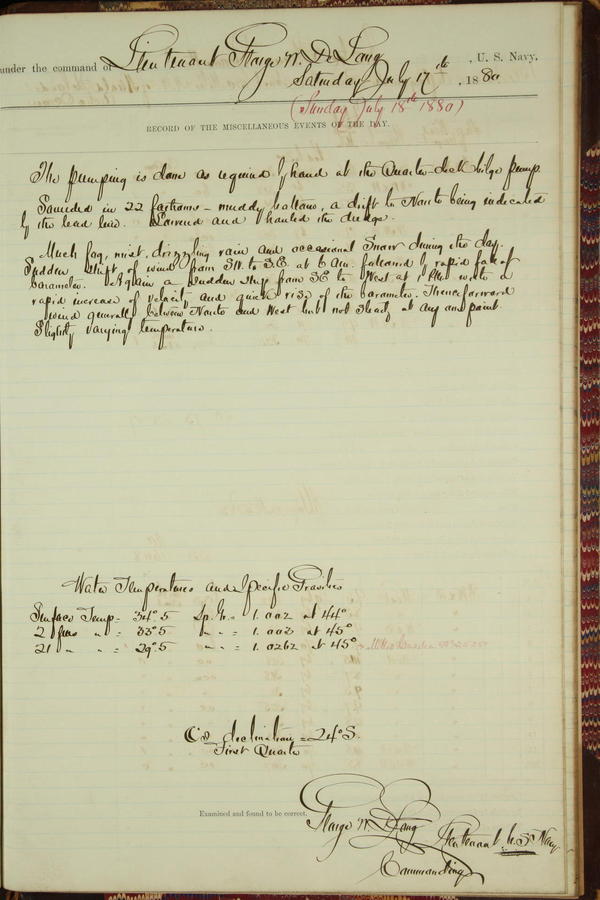 under the command of Lieutenant George W. De Long, U. S. Navy,
Saturday July 17th, 1880
(Sunday July 18th 1880)
RECORD OF THE MISCELLANEOUS EVENTS OF THE DAY.
The pumping is done as required by hand at the Quarter-deck bilge pump.
Sounded in 22 fathoms - muddy bottom, a drift to North being indicated
by the lead line. Lowered and hauled the dredge.
Much fog, mist, drizzling rain and occasional Snow during the day.
Sudden shift of wind from SW. to S.E. at 6 a.m. followed by rapid fall of
barometer. Again a sudden shift from SE to West at with a
rapid increase of velocity and quick rise of the barometer. Thenceforward
wind generally between North and West but not steady at any one point.
Slightly varying temperature.
Water Temperatures and Specific Gravities
Surface Temp = 34°.5 Sp. Gr. = 1.002 at 44°
2 fms " = 33°.5 " " = 1.003 at 45°
21 " " = 29°.5 " " = 1.0262 at 45°
declination = 24° S.
First Quarter
Examined and found to be correct.
George W. De Long Lieutenant U.S. Navy
Commanding